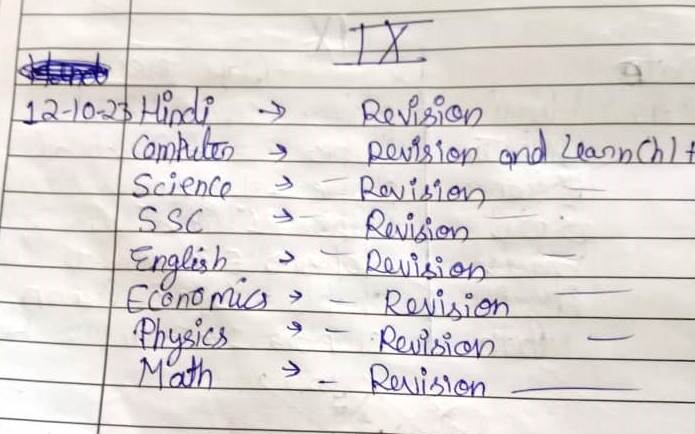 IX
12-10-23 Hindi → Revision
Computer → Revision and Learn Ch 1
Science → - Revision -
SSC → - Revision -
English → - Revision -
Economics → - Revision -
Physics → - Revision -
Math → - Revision -